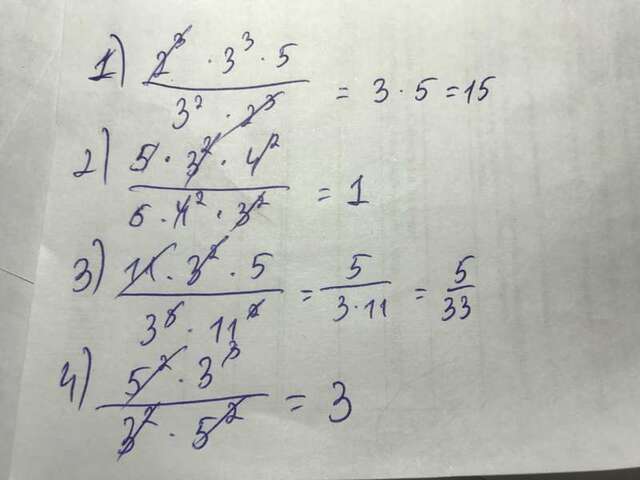 1) 2³ · 3³ · 5 / 3² · 2³ = 3 · 5 = 15
2) 5 · 3² · 4² / 6 · 4² · 3² = 1
3) 11 · 3² · 5 / 3 · 11 = 5 / 3 · 11 = 5 / 33
4) 5² · 3³ / 3² · 5² = 3